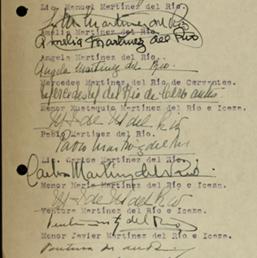 Lic. Manuel Martínez del Río.
Amelia Martínez del Río.
Amelia Martínez del Río
Angela Martínez del Río.
Angela Martínez del Río.
Mercedes Martínez del Río de Cervantes.
Mercedes M. del Río de Cervantes
Menor Eustaquio Martínez del Río e Icaza.
M. de M. del Río
Pablo Martínez del Río.
Pablo Martínez del Río
Lic. Carlos Martínez del Río.
Carlos Martínez del Río
Menor María Martínez del Río e Icaza.
M. de M. del Río
Ventura Martínez del Río e Icaza.
Menor Javier Martínez del Río e Icaza.